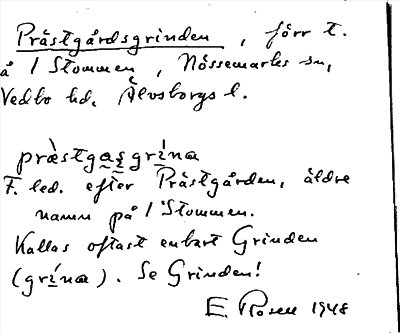 Prästgårdsgrinden, förr t.
å 1 Stommen, Nössemarks sn,
Vedbo hd. Älvsborgs l.
præ̀stgas̜grína
F. led. efter Prästgården, äldre
namn på 1 Stommen.
Kallas oftast enbart Grinden
(grína). Se Grinden!
E. Rosell 1948